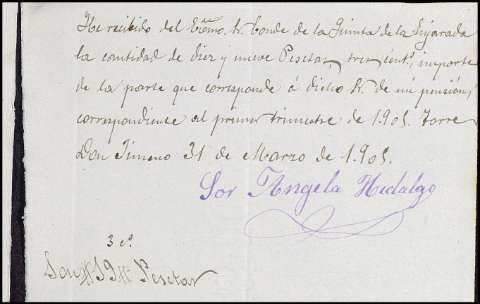 He recibido del Excmo. Sr. Conde de la Quinta de la Enjarada
la cantidad de diez y nueve Pesetas, tres cents, importe
de la parte que corresponde á dicho Sr. de mi pensión,
correspondiente al primer trimestre de 1.905. Torre
Don Jimeno 31 de Marzo de 1.905.
Sor Angela Hidalgo
3 cs.
Son # 19 # Pesetas